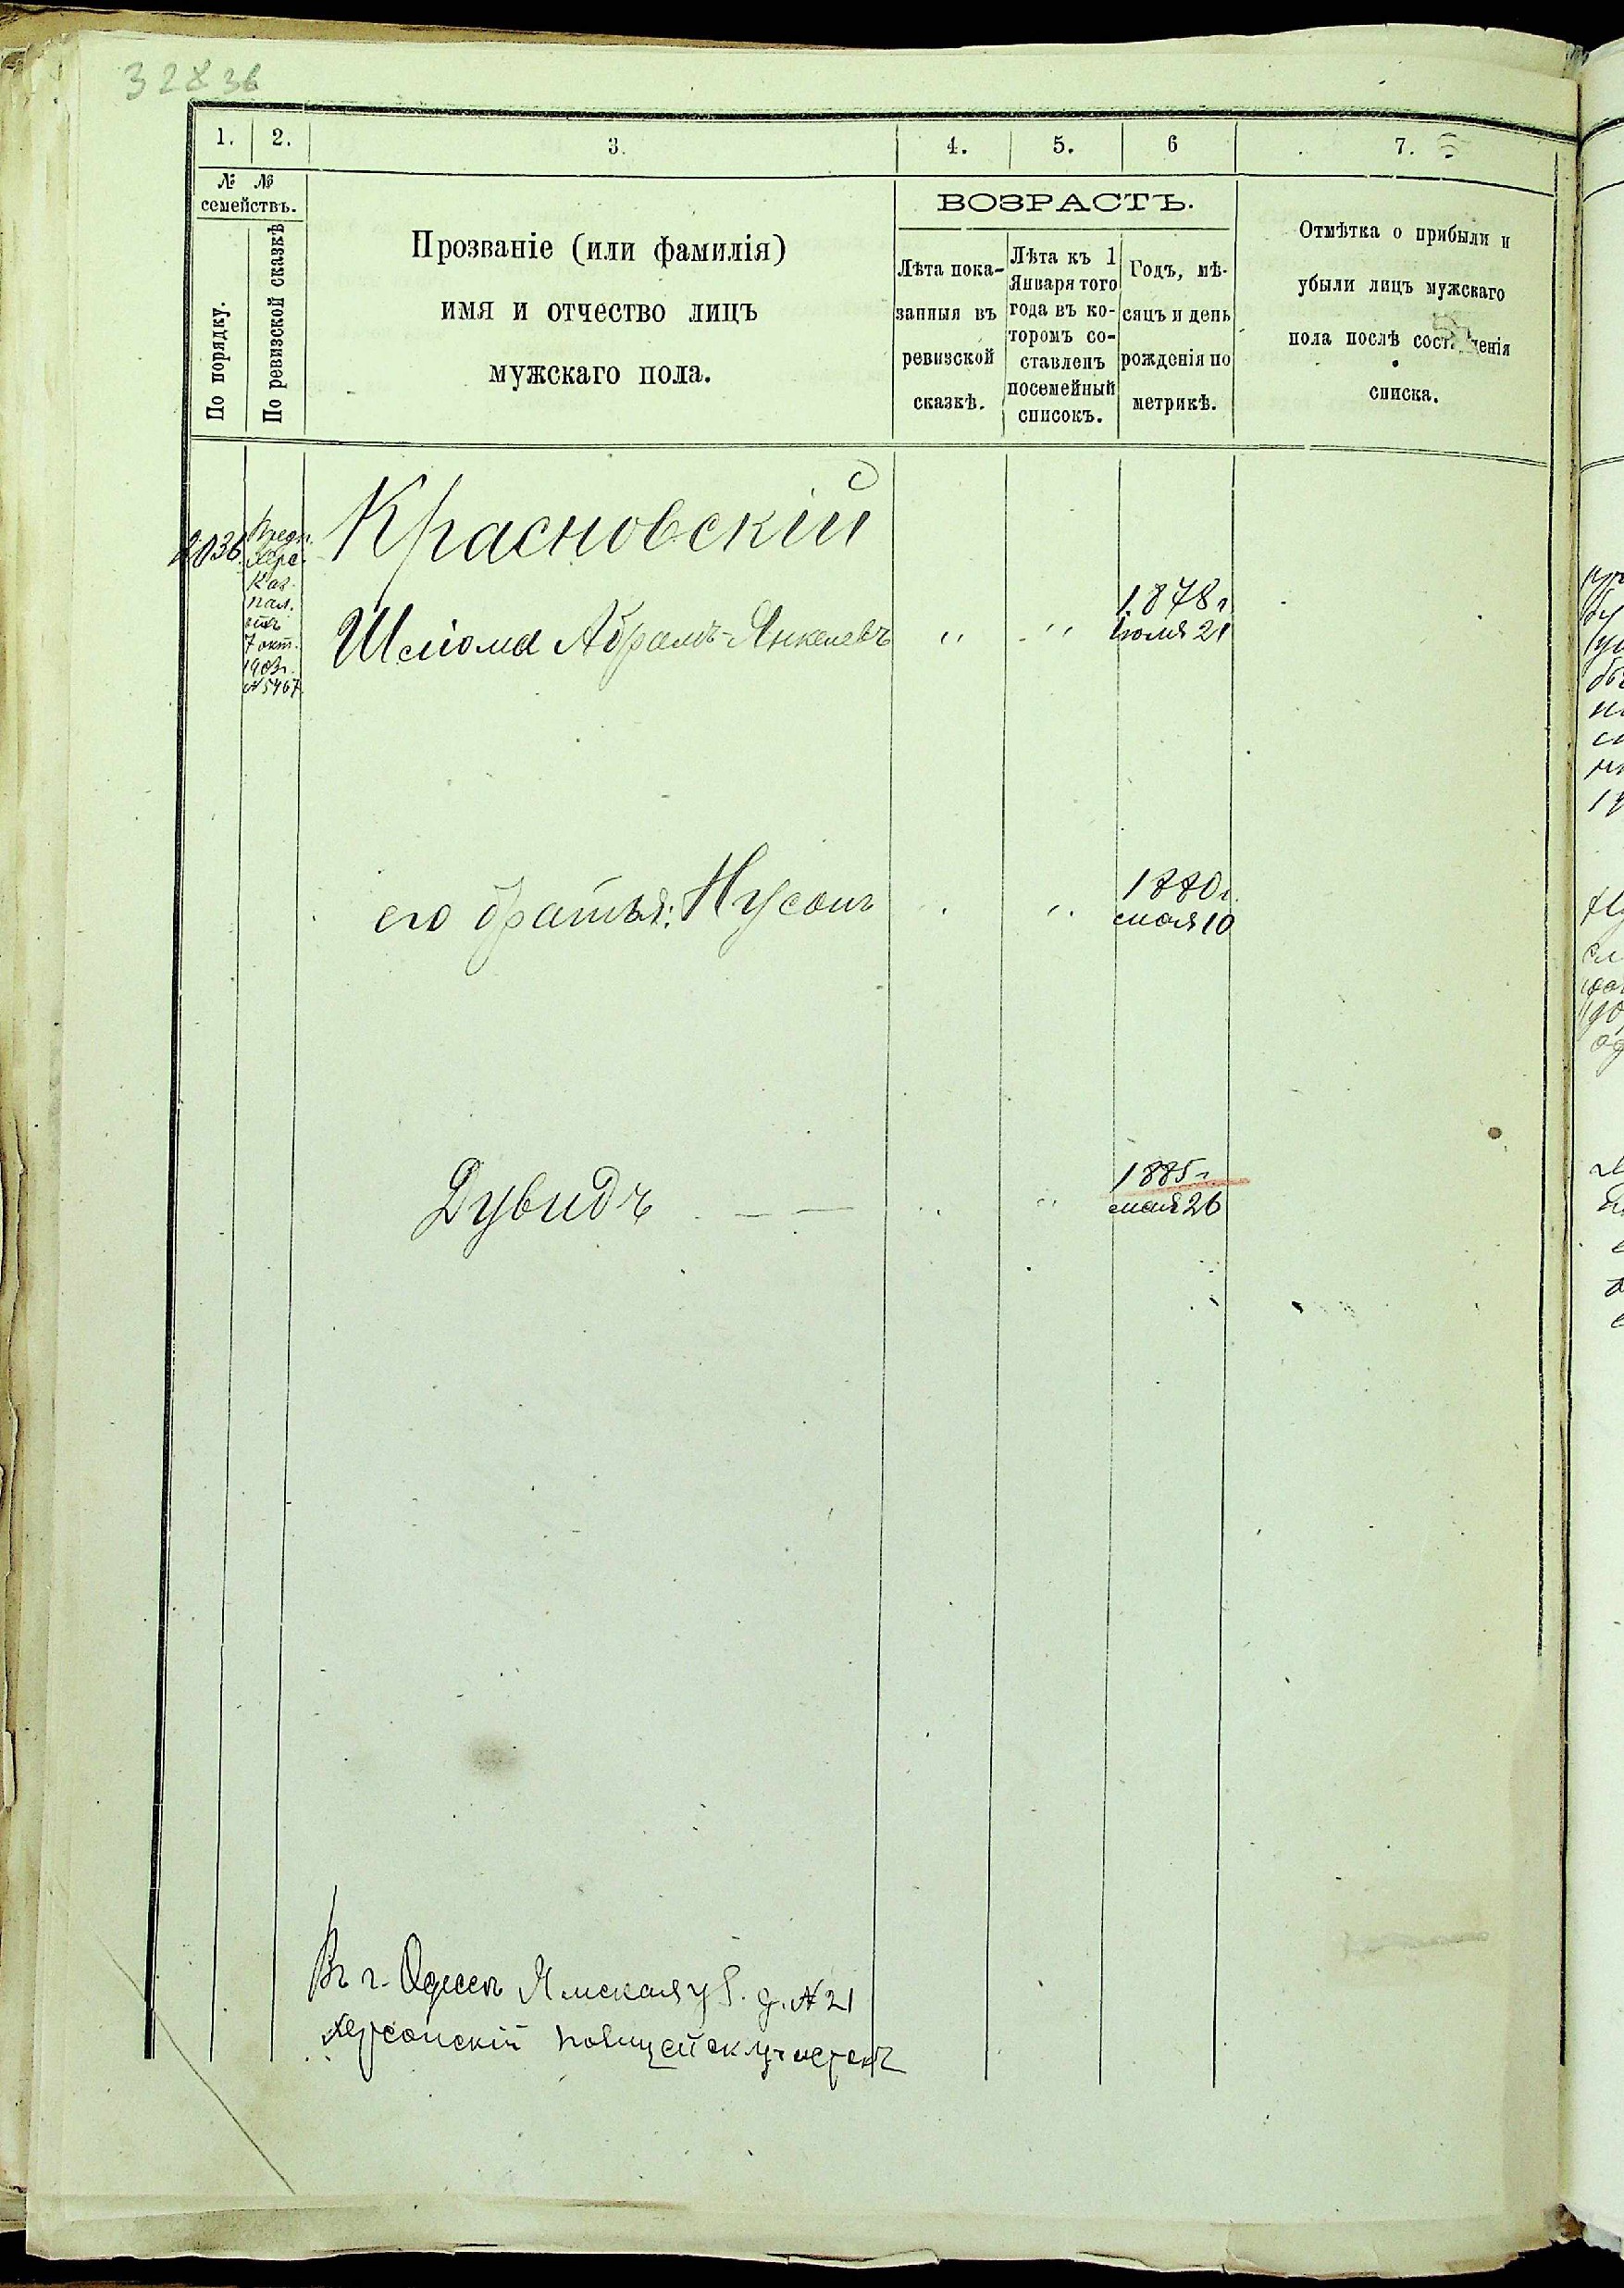 32836
1. 2. 3. 4. 5. 6 7.
№ №
семействъ.
По порядку.
По ревизской сказкѣ
Прозваніе (или фамилія)
имя и отчество лицъ
мужскаго пола.
ВОЗРАСТЪ.
Лѣта пока-
занныя въ
ревизской
сказкѣ.
Лѣта къ 1
Января того
года въ ко-
торомъ со-
ставленъ
посемейный
списокъ.
Годъ, мѣ-
сяцъ и день
рожденія по
метрикѣ.
Отмѣтка о прибыли и
убыли лицъ мужскаго
пола послѣ составленія
списка.
2036.
Предп.
Херс.
Каз.
пал.
отъ
7 окт.
1903г.
№5467.
Красновскій
Шліома Абрамъ-Янкелевъ " " 1878г
Іюля 21
его братья: Нусонъ " " 1880г.
мая 10
Дувидъ — — " " 1885г.
мая 26
Въ г. Одессѣ Ямская ул. д. №21
Херсонскій полицейск участокъ